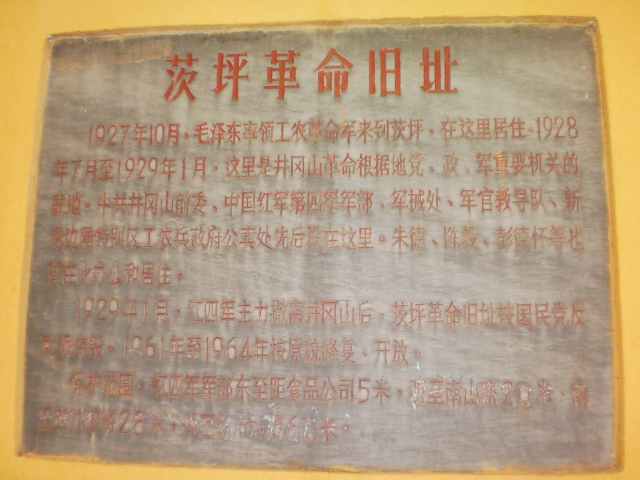 茨坪革命旧址
1927年10月，毛泽东率领工农革命军来到茨坪，在这里居住。1928
年7月至1929年1月，这里是井冈山革命根据地党、政、军重要机关的
驻地。中共井冈山前委、中国红军第四军军部、军械处、军官教导队、新
遂边陲特别区工农兵政府公卖处先后设在这里。朱德、陈毅、彭德怀等也
在此办公和居住。
1929年1月，红四军主力撤离井冈山后，茨坪革命旧址被国民党反
1961年至1964年按原貌修复、开放。
保护范围：红四军军部东至距食品公司5米，西至南山
米。